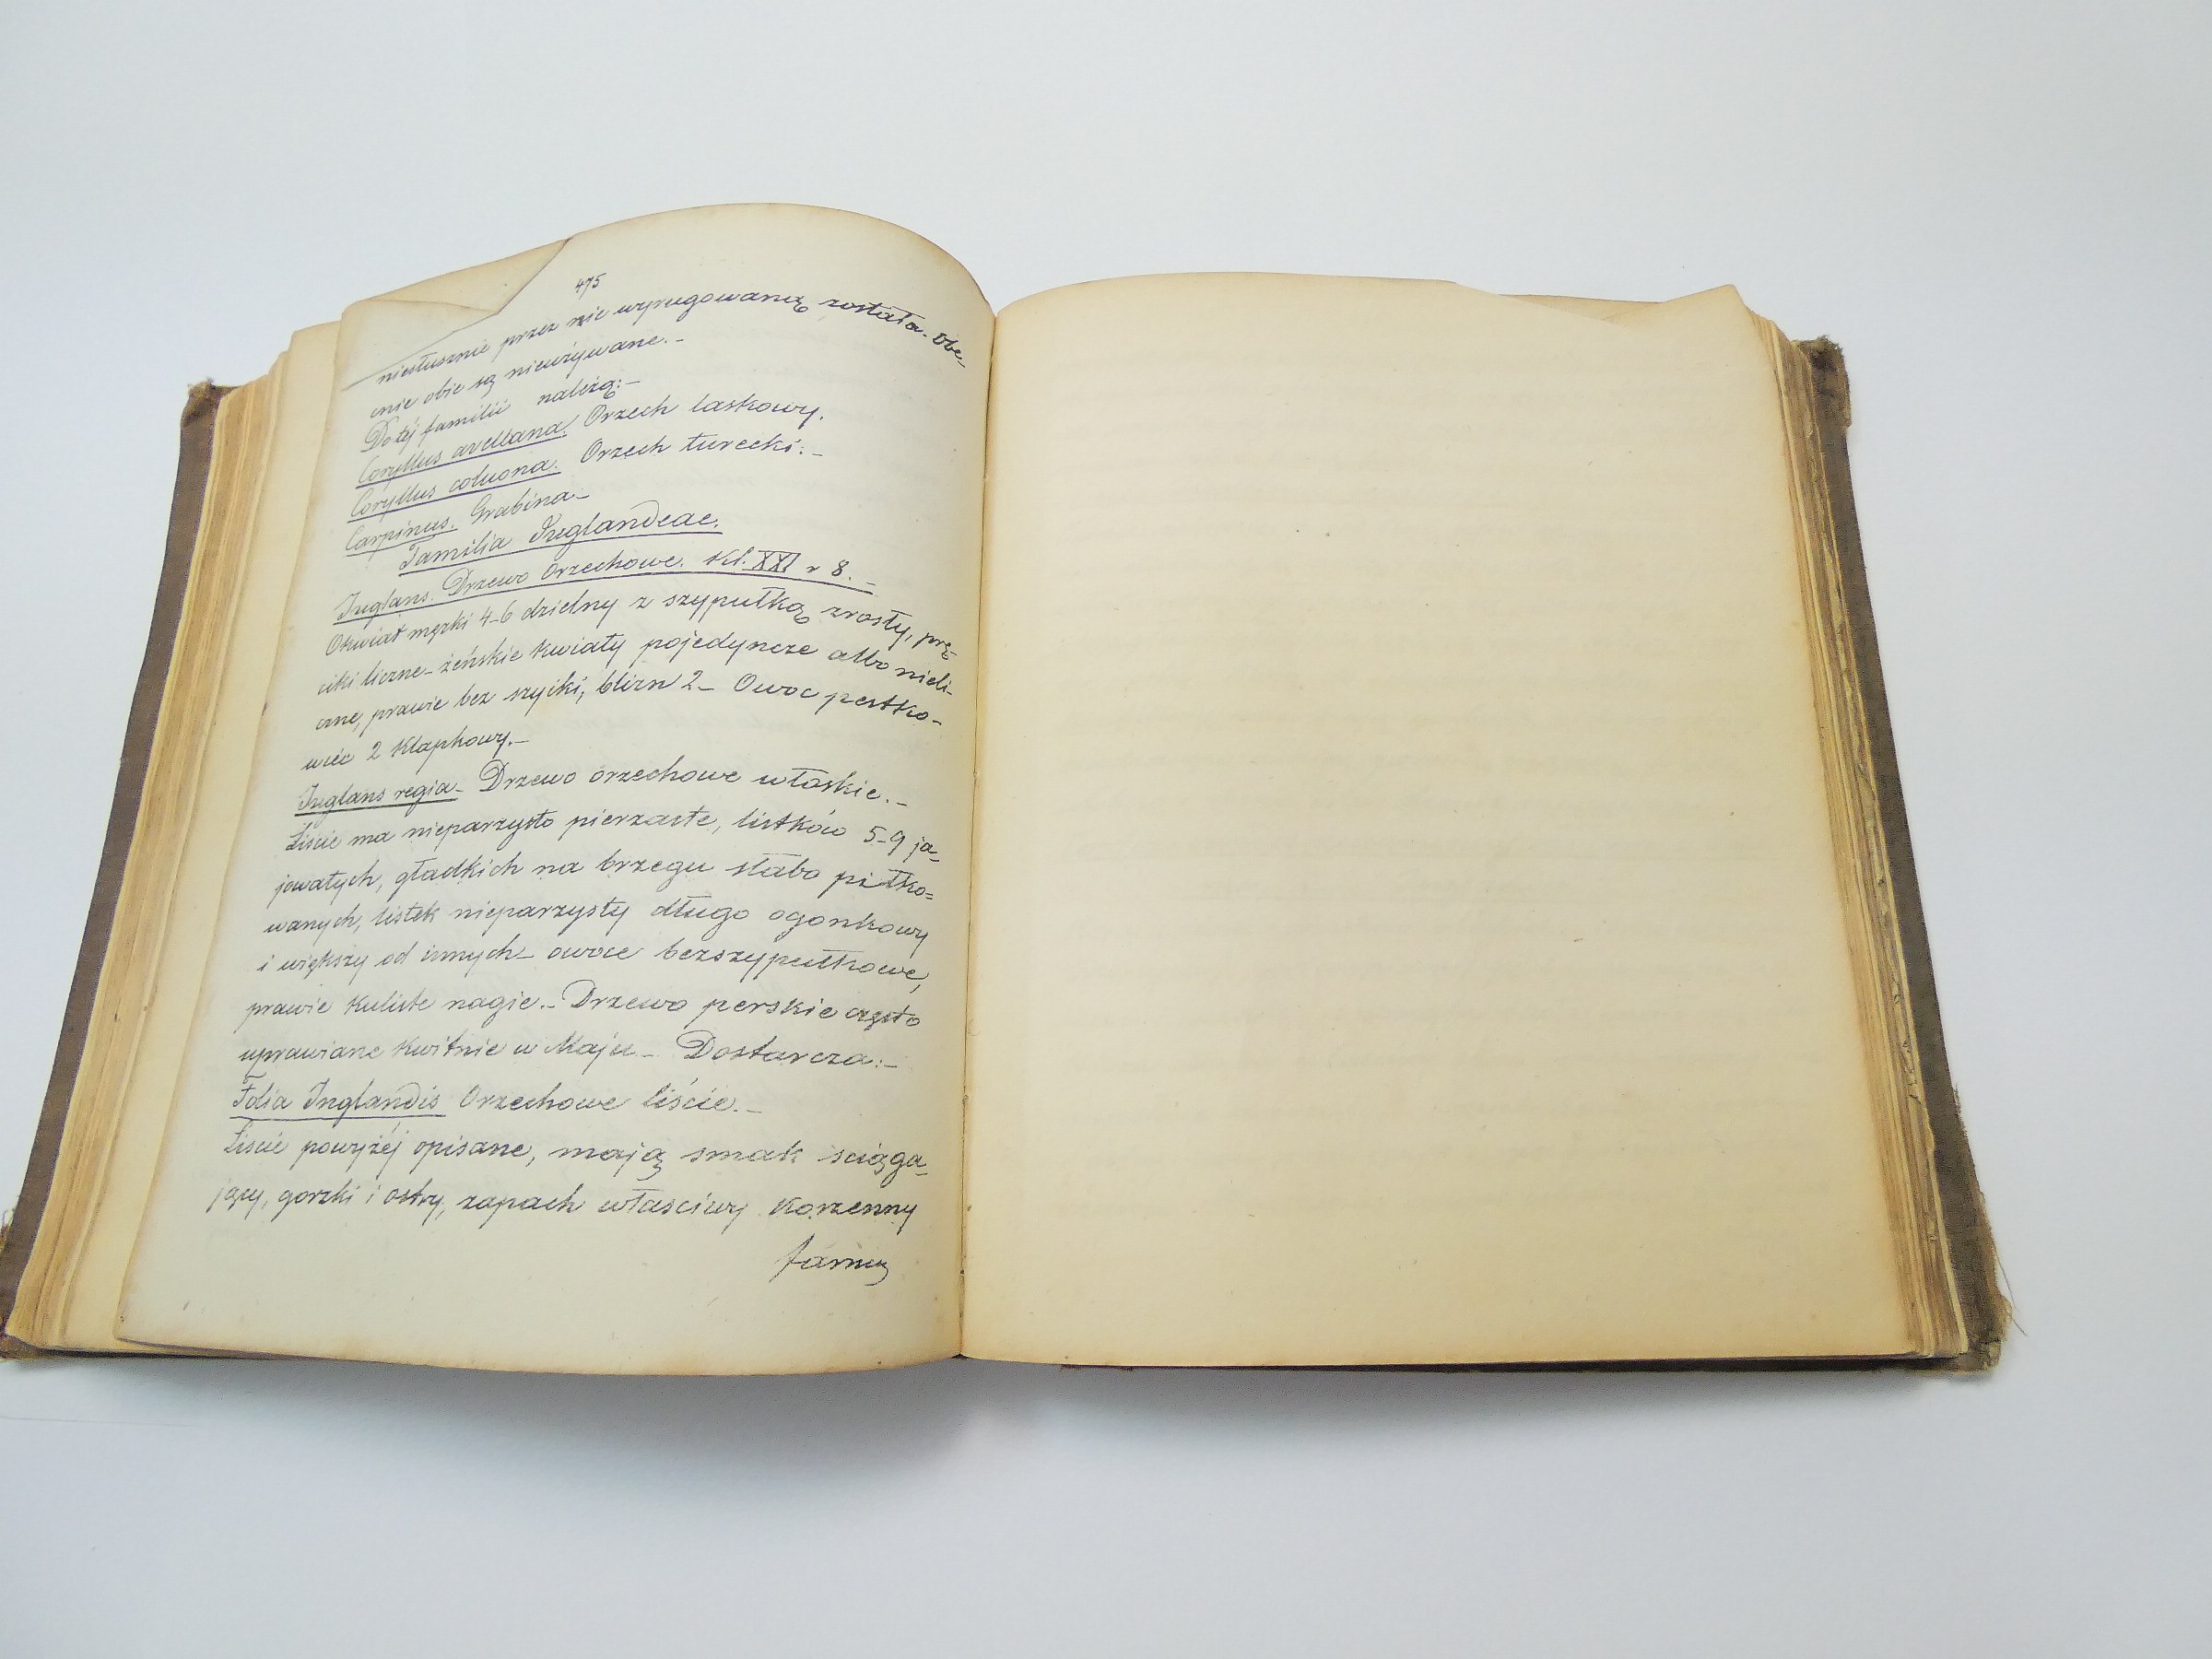 475
niesłusznie przez nie wyrugowaną została. Obe-
cnie obie są nieużywane.-
Do téj familii należą:-
Coryllus avellana. Orzech laskowy.
Coryllus coluona. Orzech turecki:-
Carpinus. Grabina-
Familia Juglandeae.
Juglans. Drzewo Orzechowe. Kl. XXI r 8.-
Okwiat męzki 4-6 dzielny z szypułką zrosły, prę-
ciki liczne- żeńskie kwiaty pojedyncze albo nieli-
czne, prawie bez szyiki, blizn 2- Owoc pestko-
wiec 2 klapkowy.-
Juglans regia- Drzewo orzechowe włoskie.-
Liście ma nieparzysto pierzaste, listków 5-9 ja-
jowatych, gładkich na brzegu słabo piłko=
wanych, listek nieparzysty długo ogonkowy
i większy od innych- owoce bezszypułkowe,
prawie kuliste nagie.- Drzewo perskie często
uprawiane kwitnie w Maju- Dostarcza:-
Folia Juglandis Orzechowe liście.-
Liście powyżéj opisane, mają smak sciąga-
jący, gorzki i ostry, zapach własciwy korzenny